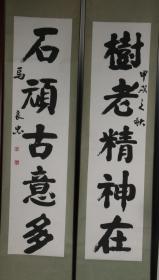 樹老精神在
甲戌之秋
石頑古意多
馬良忠